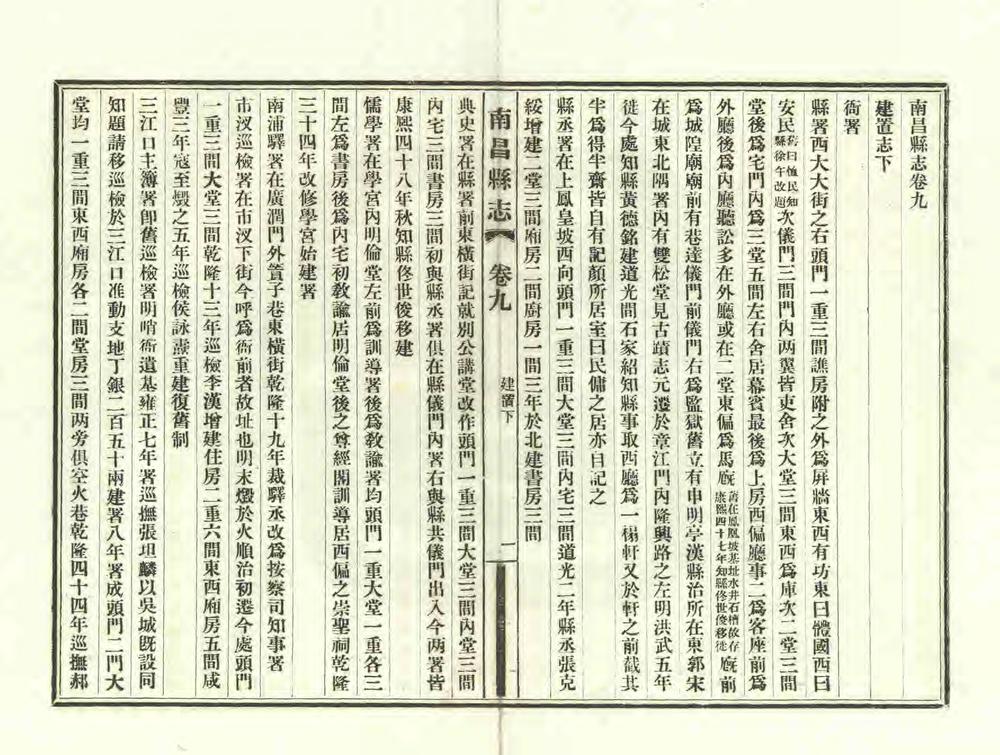 南昌縣志卷九
建置志下
衙署
縣署西大大街之右頭門一重三間譙房附之外爲屏牆東西有坊東曰體國西曰
安民舊曰恤民知縣徐午改題次儀門三間門內两翼皆吏舍次大堂三間東西爲庫次二堂三間
堂後爲宅門內爲三堂五間左右舍居幕賓最後爲上房西偏廳事二爲客座前爲
外廳後爲內廳聽訟多在外廳或在二堂東偏爲馬廐舊在鳳凰坡基址水井石槽故存康熙四十七年知縣佟世俊移徙廐前
爲城隍廟廟前有巷達儀門前儀門右爲監獄舊立有申明亭漢縣治所在東郭宋
在城東北隅署內有雙松堂見古蹟志元遷於章江門內隆興路之左明洪武五年
徙今處知縣黃德銘建道光間石家紹知縣事取西廳爲一榻軒又於軒之前截其
半爲得半齋皆自有記顏所居室曰民傭之居亦自記之
縣丞署在上鳳皇坡西向頭門一重三間大堂三間內宅三間道光二年縣丞張克
綏增建二堂三間廂房二間廚房一間三年於北建書房三間
南昌縣志 卷九 建置下 一
典史署在縣署前東橫街記就別公講堂改作頭門一重三間大堂三間內堂三間
內宅三間書房三間初與縣丞署俱在縣儀門內署右與縣共儀門出入今两署皆
康熙四十八年秋知縣佟世俊移建
儒學署在學宮內明倫堂左前爲訓導署後爲教諭署均頭門一重大堂一重各三
間左爲書房後爲內宅初教諭居明倫堂後之尊經閣訓導居西偏之崇聖祠乾隆
三十四年改修學宮始建署
南浦驛署在廣潤門外篢子巷東橫街乾隆十九年裁驛丞改爲按察司知事署
市汊巡檢署在市汊下街今呼爲衙前者故址也明末燬於火順治初遷今處頭門
一重三間大堂三間乾隆十三年巡檢李漢增建住房二重六間東西廂房五間咸
豐三年寇至燬之五年巡檢侯詠燾重建復舊制
三江口主簿署卽舊巡檢署明哨衙遺基雍正七年署巡撫張坦麟以吳城旣設同
知題請移巡檢於三江口准動支地丁銀二百五十兩建署八年署成頭門二門大
堂均一重三間東西廂房各二間堂房三間两旁俱空火巷乾隆四十四年巡撫郝